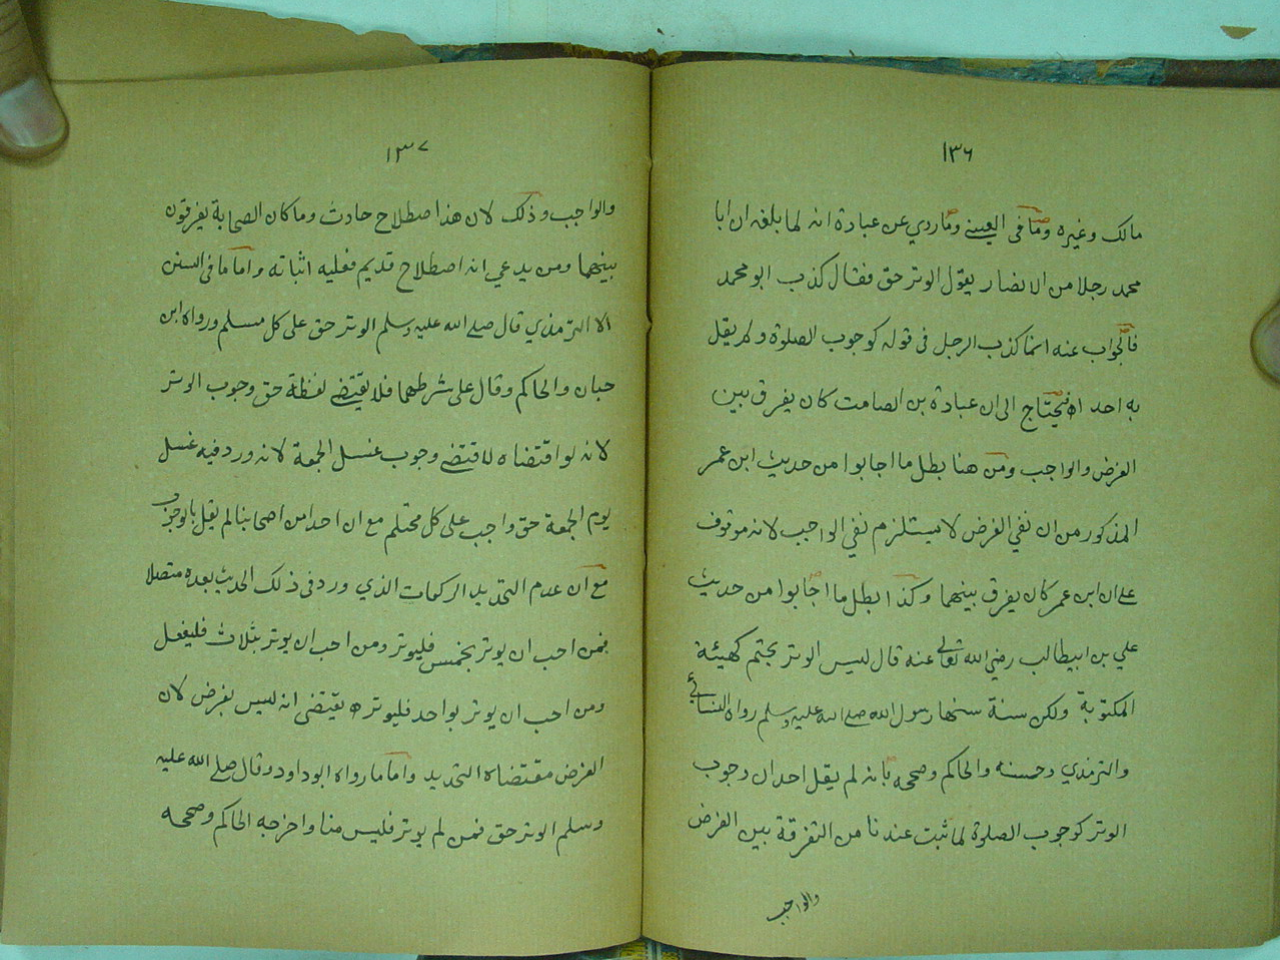 ١٣٦
مالك وغيره وما في العيني وما روي عن عبادة انه لما بلغه ان ابا
محمد رجلا من الانصار يقول الوتر حق فقال كذب ابو محمد
فالجواب عنه انما كذب الرجل في قوله كوجوب الصلوة ولم يقل
به احد اه فيحتاج الى ان عبادة بن الصامت كان يفرق بين
الفرض والواجب ومن هنا بطل ما اجابوا من حديث ابن عمر
المذكور من ان نفي الفرض لا يستلزم نفي الواجب لانه موقوف
على ان ابن عمر كان يفرق بينهما وكذا بطل ما اجابوا من حديث
علي بن ابيطالب رضي الله تعالى عنه قال ليس الوتر بحتم كهيئة
المكتوبة ولكن سنة سنها رسول الله صلى الله عليه وسلم رواه النسائي
والترمذي وحسنه والحاكم وصححه بانه لم يقل احد ان وجوب
الوتر كوجوب الصلوة لما ثبت عندنا من التفرقة بين الفرض
والواجب
١٣٧
والواجب وذلك لان هذا اصطلاح حادث وما كان الصحابة يفرقون
بينهما ومن يدعي انه اصطلاح قديم فعليه اثباته واما ما في السنن
الا الترمذي قال صلى الله عليه وسلم الوتر حق على كل مسلم ورواه ابن
حبان والحاكم وقال على شرطهما فلا يقتضي لفظة حق وجوب الوتر
لانه لو اقتضاه لاقتضى وجوب غسل الجمعة لانه ورد فيه غسل
يوم الجمعة حق واجب على كل محتلم مع ان احدا من اصحابنا لم يقل بالوجوب
مع ان عدم التحديد الركعات الذي ورد في ذلك الحديث بعده متصلا
فمن احب ان يوتر بخمس فليوتر ومن احب ان يوتر بثلاث فليفعل
ومن احب ان يوتر بواحد فليوتر اه يقتضى انه ليس بفرض لان
الفرض مقتضاه التحديد واما ما رواه ابو داود وقال صلى الله عليه
وسلم الوتر حق فمن لم يوتر فليس منا واخرجه الحاكم وصححه